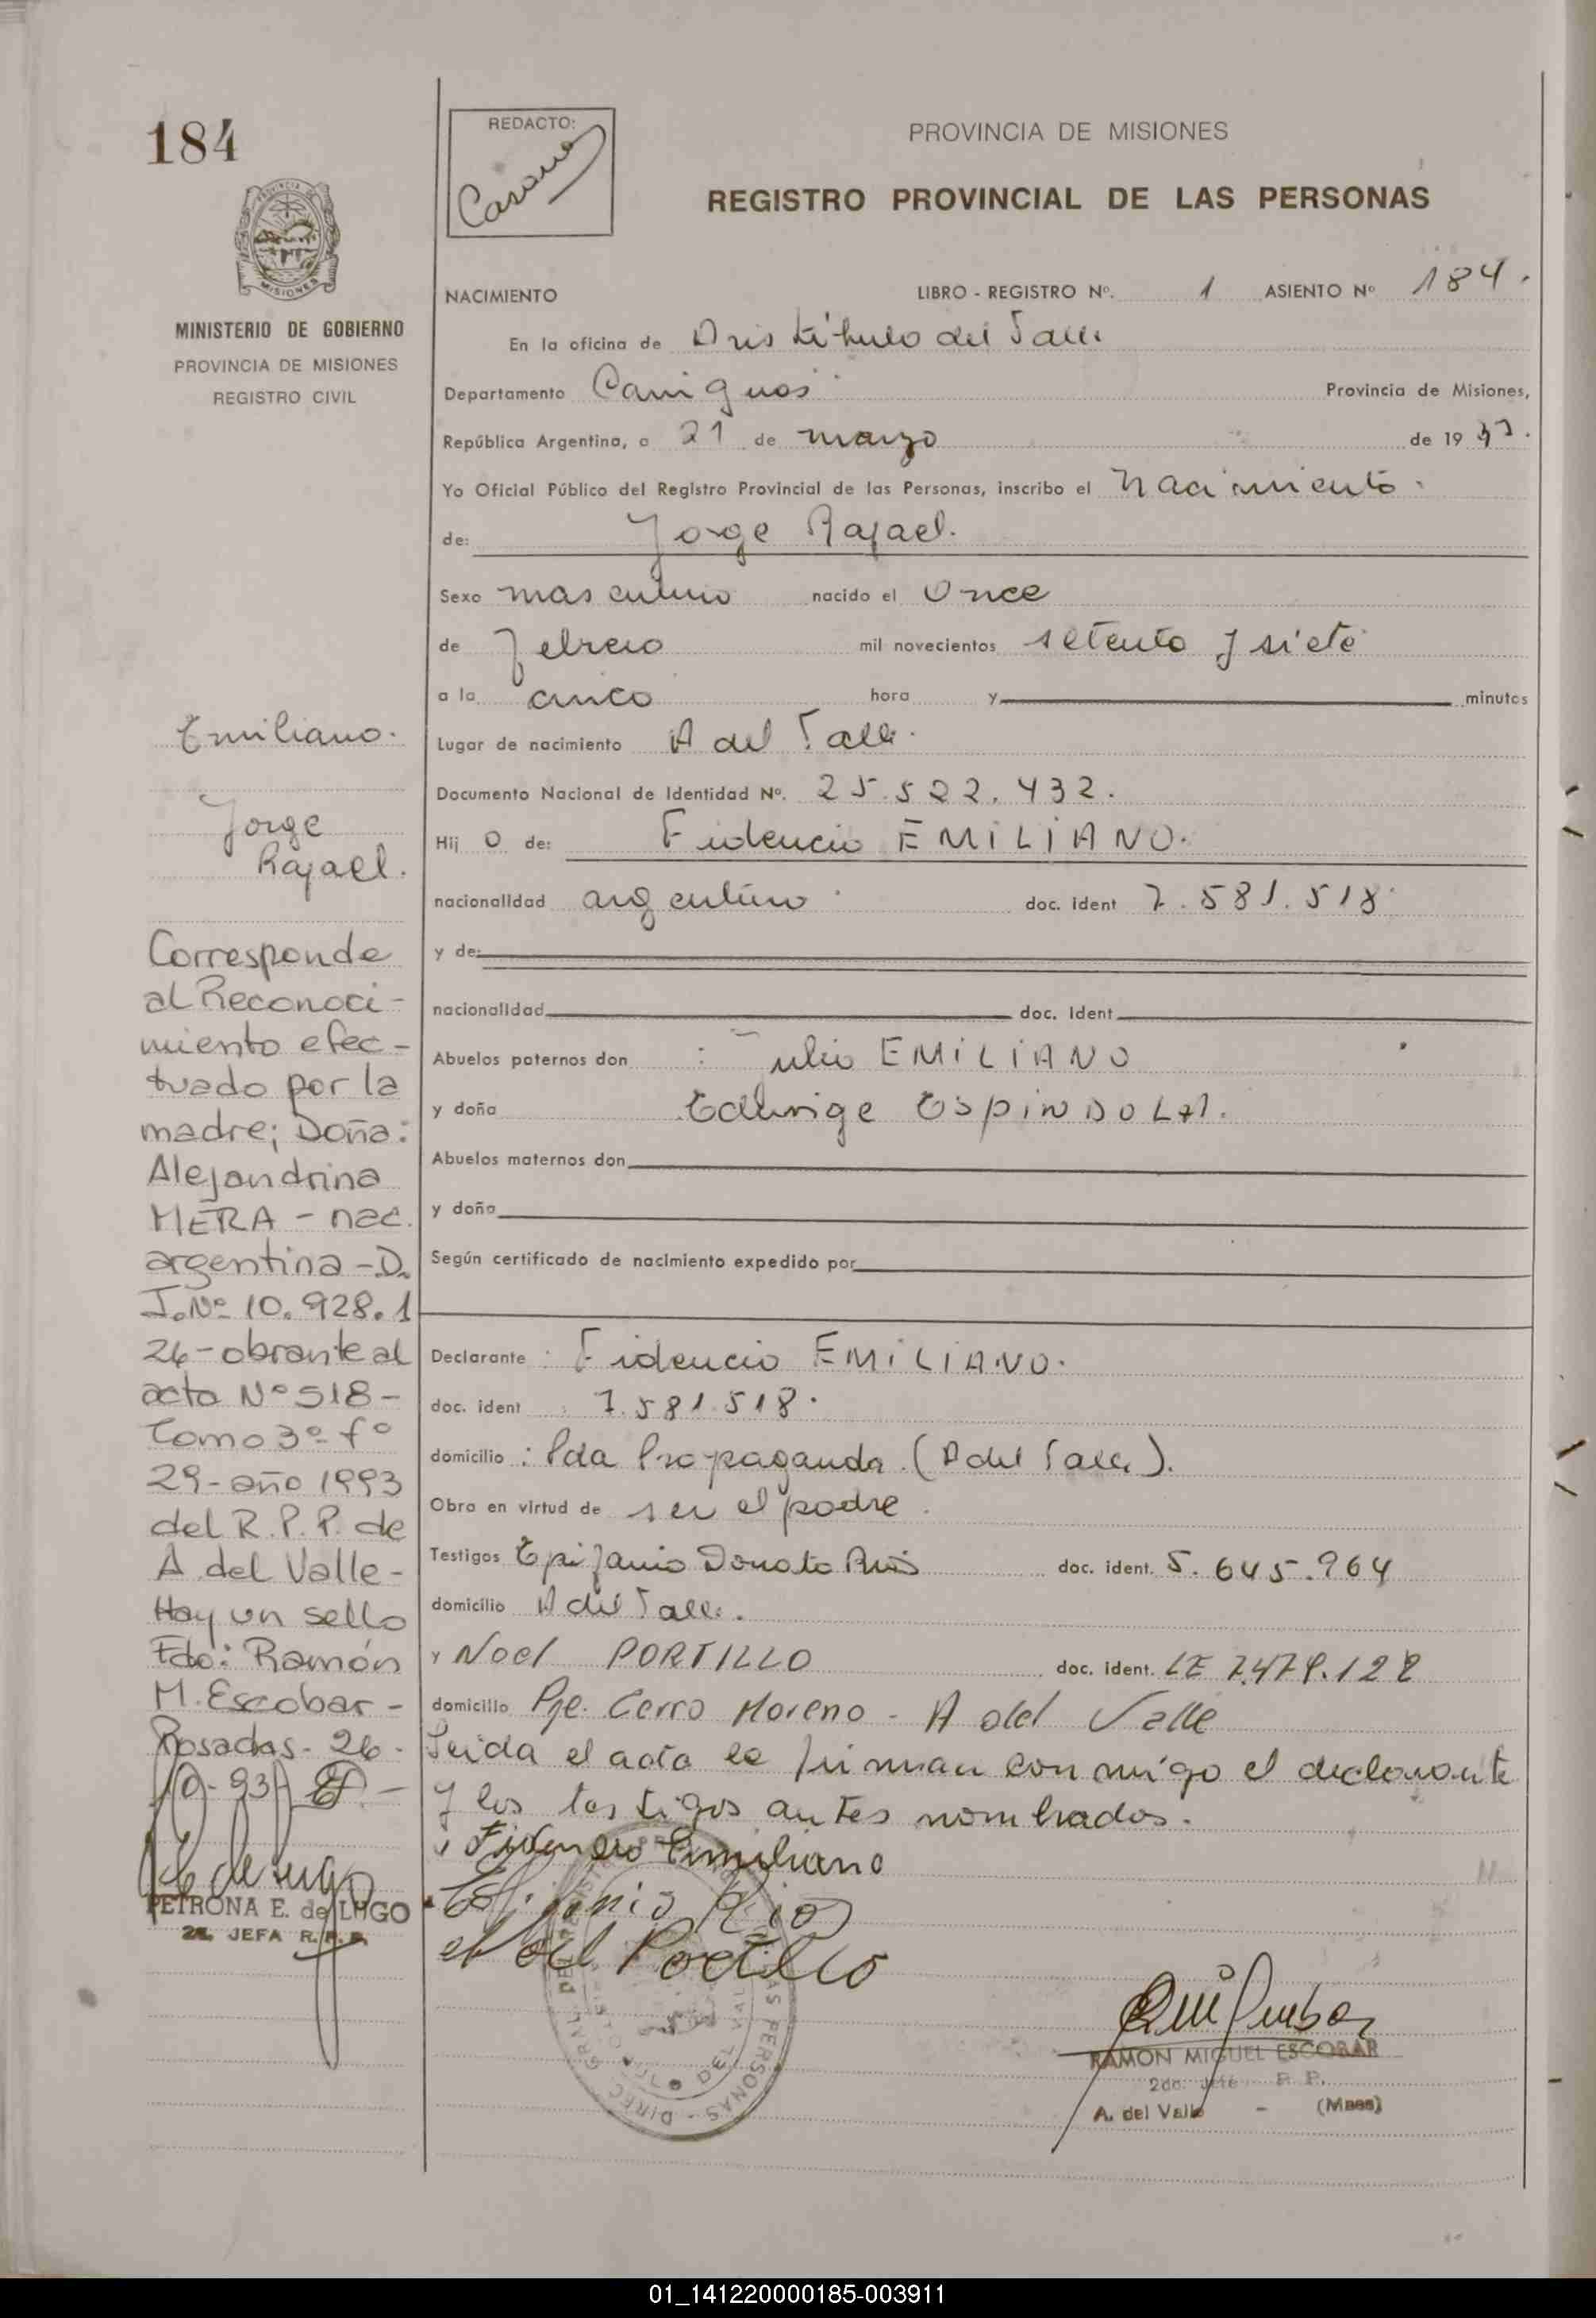 184
REDACTO:
PROVINCIA DE MISIONES
REGISTRO PROVINCIAL DE LAS PERSONAS
MISIONES
MINISTERIO DE GOBIERNO
PROVINCIA DE MISIONES
REGISTRO CIVIL
NACIMIENTO LIBRO - REGISTRO Nº. 1 ASIENTO Nº 184.
En la oficina de Aristóbulo del Valle
Departamento Cainguás Provincia de Misiones,
República Argentina, a 21 de marzo de 19
Yo Oficial Público del Registro Provincial de las Personas, inscribo el Nacimiento.
de: Jorge Rafael.
Sexo masculino nacido el Once
de febrero mil novecientos setenta y siete
a la cinco hora y minutos
Lugar de nacimiento A del Valle.
Documento Nacional de Identidad Nº. 25.522.432.
Hij o de: Fidencio EMILIANO.
nacionalidad argentino doc. ident 7.581.518
y de:
nacionalidad doc. ident
Abuelos paternos don : Julio EMILIANO
y doña ESPINDOLA.
Abuelos maternos don
y doña
Según certificado de nacimiento expedido por
Declarante : Fidencio EMILIANO.
doc. ident : 7.581.518.
domicilio : Pda Propaganda (A del Valle).
Obra en virtud de ser el padre.
Testigos Epifanio Donato Rios doc. ident. 5.645.964
domicilio A del Valle.
y Noel PORTILLO doc. ident. LE 7.479.122
domicilio Pje. Cerro Moreno - A del Valle
Leida el acta la firman con migo el declarante
y los testigos antes nombrados.
Fidencio Emiliano
Epifanio Rios
Noel Portillo
RAMON MIGUEL ESCOBAR
2do. Jefe R. P.
A. del Valle - (Mnes)
Emiliano.
Jorge
Rafael.
Corresponde
al Reconoci-
miento efec-
tuado por la
madre; Doña:
Alejandrina
MERA - nac.
argentina - D.
I. Nº 10.928.1
24 - obrante al
acta Nº 518 -
Tomo 3º fº
29 - año 1993
del R. P. P. de
A. del Valle -
Hay un sello
Fdo: Ramón
M. Escobar -
Posadas - 26 -
10 - 93 -
PETRONA E. de LUGO
2ª. JEFA R. P. P.
01_141220000185-003911